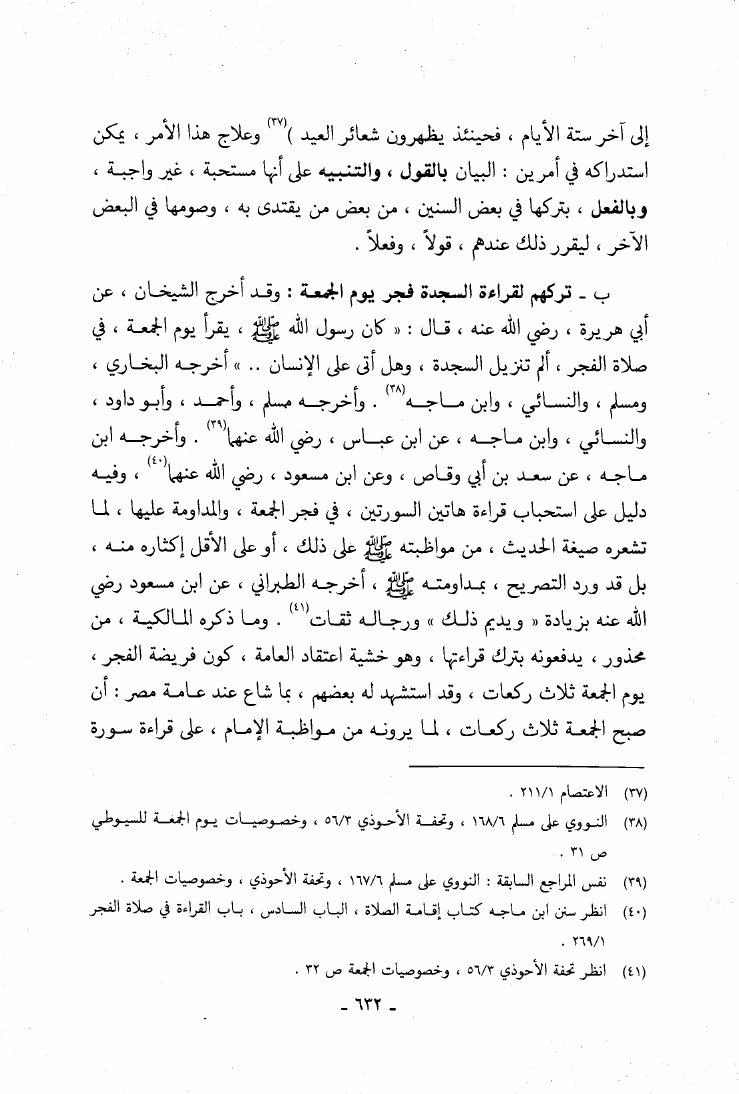 إلى آخر ستة الأيام ، فحينئذ يظهرون شعائر العيد )(٣٧) وعلاج هذا الأمر ، يمكن
استدراكه في أمرين : البيان بالقول ، والتنبيه على أنها مستحبة ، غير واجبة ،
وبالفعل ، بتركها في بعض السنين ، من بعض من يقتدى به ، وصومها في البعض
الآخر ، ليقرر ذلك عندهم ، قولاً ، وفعلاً .
ب ـ تركهم لقراءة السجدة فجر يوم الجمعة : وقد أخرج الشيخان ، عن
أبي هريرة ، رضي الله عنه ، قال : « كان رسول الله ﷺ ، يقرأ يوم الجمعة ، في
صلاة الفجر ، ألم تنزيل السجدة ، وهل أتى على الإنسان .. » أخرجه البخاري ،
ومسلم ، والنسائي ، وابن ماجه(٣٨) . وأخرجه مسلم ، وأحمد ، وأبو داود ،
والنسائي ، وابن ماجه ، عن ابن عباس ، رضي الله عنهما(٣٩) . وأخرجه ابن
ماجه ، عن سعد بن أبي وقاص ، وعن ابن مسعود ، رضي الله عنهما(٤٠) ، وفيه
دليل على استحباب قراءة هاتين السورتين ، في فجر الجمعة ، والمداومة عليها ، لما
تشعره صيغة الحديث ، من مواظبته ﷺ على ذلك ، أو على الأقل إكثاره منه ،
بل قد ورد التصريح ، بمداومته ﷺ ، أخرجه الطبراني ، عن ابن مسعود رضي
الله عنه بزيادة « ويديم ذلك » ورجاله ثقات(٤١) . وما ذكره المالكية ، من
محذور ، يدفعونه بترك قراءتها ، وهو خشية اعتقاد العامة ، كون فريضة الفجر ،
يوم الجمعة ثلاث ركعات ، وقد استشهد له بعضهم ، بما شاع عند عامة مصر : أن
صبح الجمعة ثلاث ركعات ، لما يرونه من مواظبة الإمام ، على قراءة سورة
(٣٧) الاعتصام ٢١١/١ .
(٣٨) النووي على مسلم ١٦٨/٦ ، وتحفة الأحوذي ٥٦/٣ ، وخصوصيات يوم الجمعة للسيوطي
ص ٣١ .
(٣٩) نفس المراجع السابقة : النووي على مسلم ١٦٧/٦ ، وتحفة الأحوذي ، وخصوصيات الجمعة .
(٤٠) انظر سنن ابن ماجه كتاب إقامة الصلاة ، الباب السادس ، باب القراءة في صلاة الفجر
٢٦٩/١ .
(٤١) انظر تحفة الأحوذي ٥٦/٣ ، وخصوصيات الجمعة ص ٣٢ .
ـ ٦٣٢ ـ